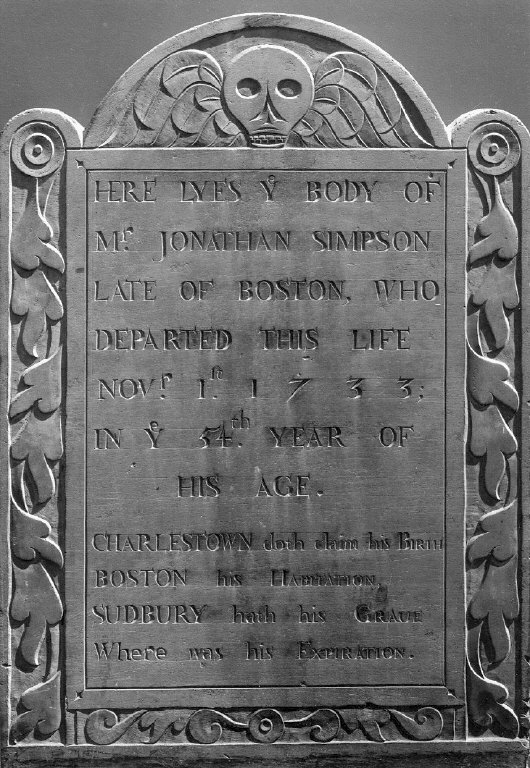 HERE LYES Yᵉ BODY OF
Mʳ. JONATHAN SIMPSON
LATE OF BOSTON, WHO
DEPARTED THIS LIFE
NOVʳ. 1ˢᵗ. 1733;
IN Yᵉ 54ᵗʰ. YEAR OF
HIS AGE.
CHARLESTOWN doth claim his BIRTH
BOSTON his HABITATION,
SUDBURY hath his GRAUE
Where was his EXPIRATION.